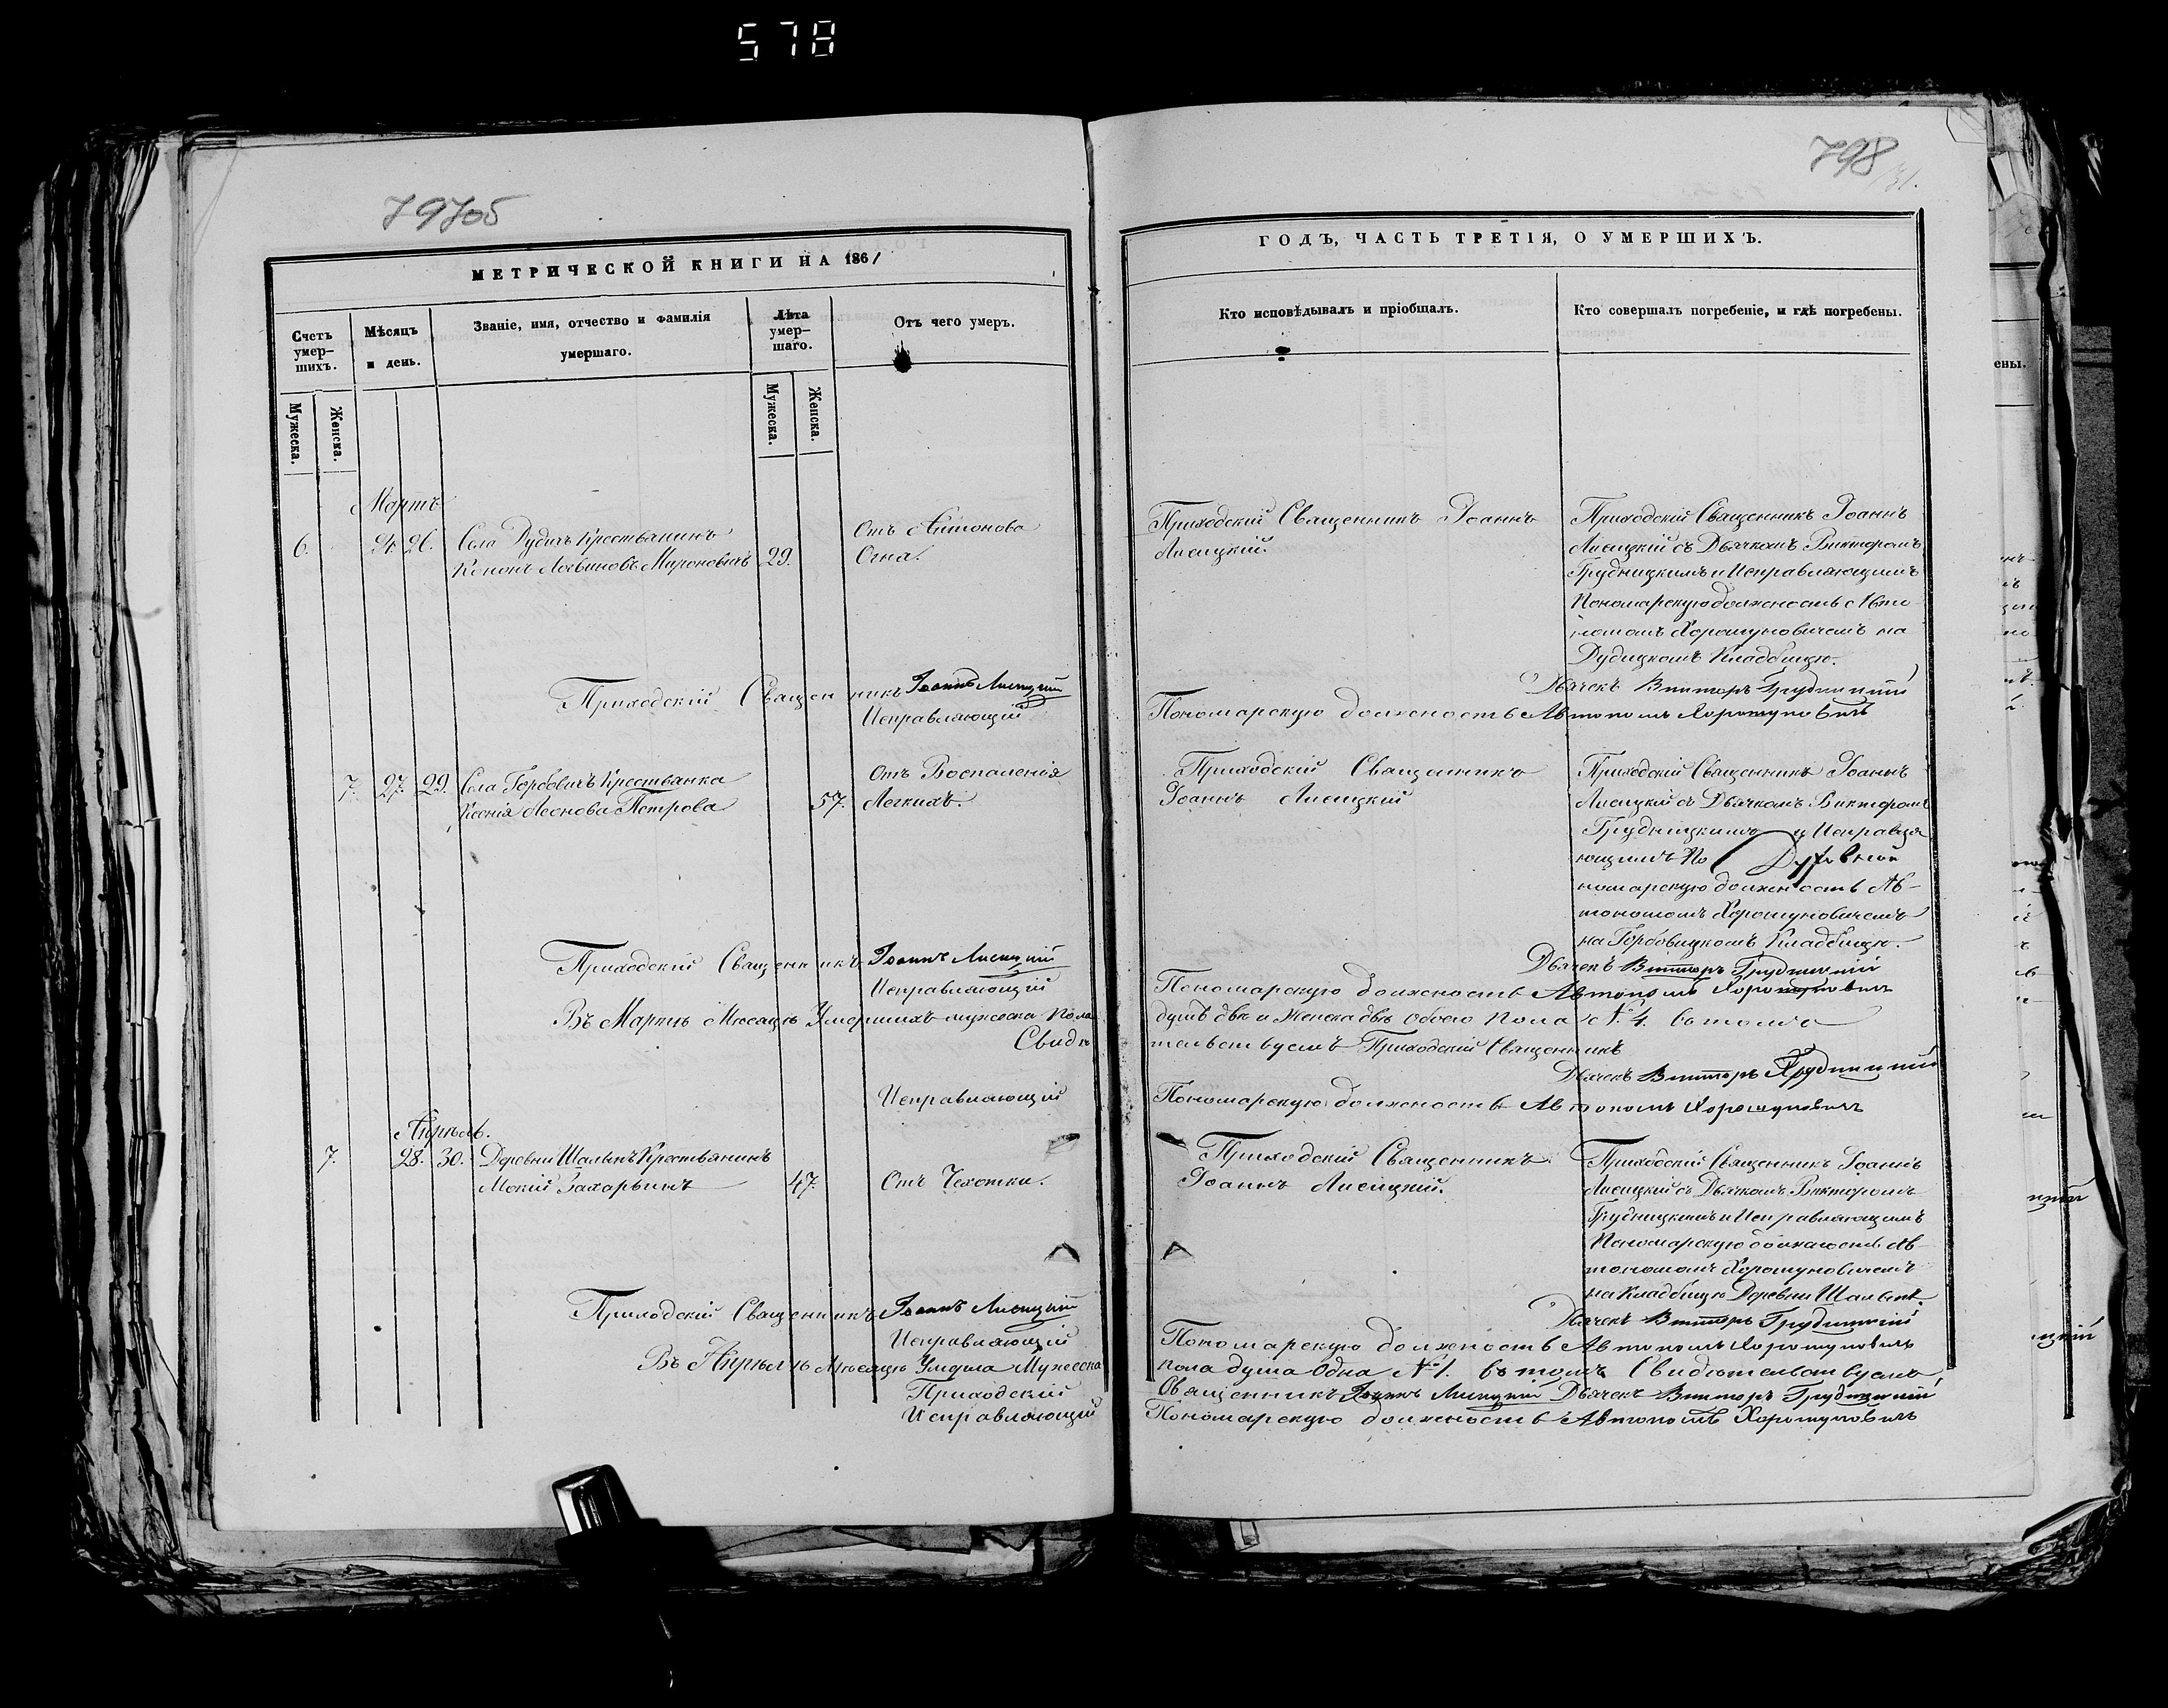 578
797об
798
МЕТРИЧЕСКОЙ КНИГИ НА 1861
Счетъ умер-шихъ.
Мѣсяцъ и день.
Званіе, имя, отчество и фамилія умершаго.
Лѣта умер-шаго.
Отъ чего умеръ.
Мужеска.
Женска.
Мужеска.
Женска.
Мартъ
6. 24. 26. Села Дудичъ Крестьянинъ
Кононъ Логвиновъ Мироновичъ 29.
Отъ Антонова
Огня.
Приходскій Священникъ Іоаннъ Лисицкій
Исправляющій
7. 27. 29. Села Горбовичъ Крестьянка
Ксенія Леонова Петрова 57.
Отъ Воспаленія
Легкихъ.
Приходскій Священникъ Іоаннъ Лисицкій
Исправляющій
Въ Мартѣ Мѣсяцѣ Умершихъ мужеска пола
Свидѣ
Исправляющій
Апрѣль.
7. 28. 30. Деревни Шалыпъ Крестьянинъ
Мокій Захарьинъ 47. Отъ Чехотки.
Приходскій Священникъ Іоаннъ Лисицкій
Исправляющій
Въ Апрѣлѣ Мѣсяцѣ Умерла Мужеска
Приходскій
Исправляющій
ГОДЪ, ЧАСТЬ ТРЕТІЯ, О УМЕРШИХЪ.
Кто исповѣдывалъ и пріобщалъ.
Кто совершалъ погребеніе, и гдѣ погребены.
Приходскій Священникъ Іоаннъ
Лисицкій.
Приходскій Священникъ Іоаннъ
Лисицкій съ Дьячкомъ Викторомъ
Грудницкимъ и Исправляющимъ
Пономарскую должность Авто
номомъ Хорошуновичемъ на
Дудицкомъ Кладбищѣ.
Дьячекъ Викторъ Грудницкій
Пономарскую должность Автономъ Хорошуновичъ
Приходскій Священникъ
Іоаннъ Лисицкій
Приходскій Священникъ Іоаннъ
Лисицкій съ Дьячкомъ Викторомъ
Грудницкимъ и Исправля
ющимъ По Духовной
номарскую должность Ав-
тономомъ Хорошуновичемъ
на Горбовицкомъ Кладбищѣ.
Дьячекъ Викторъ Грудницкій
Пономарскую должность Автономъ Хорошуновичъ
душъ двѣ и Женска двѣ обоего пола № 4. въ томъ
тельствуемъ Приходскій Священникъ
Дьячекъ Викторъ Грудницкій
Пономарскую должность Автономъ Хорошуновичъ
Приходскій Священникъ
Іоаннъ Лисицкій.
Приходскій Священникъ Іоаннъ
Лисицкій съ Дьячкомъ Викторомъ
Грудницкимъ и Исправляющимъ
Пономарскую должность Ав-
тономомъ Хорошуновичемъ
на Кладбищѣ Деревни Шалыпъ.
Дьячекъ Викторъ Грудницкій
Пономарскую должность Автономъ Хорошуновичъ
пола душа одна № 1. въ томъ Свидѣтельствуемъ
Священникъ Іоаннъ Лисицкій Дьячекъ Викторъ Грудницкій
Пономарскую должность Автономъ Хорошуновичъ